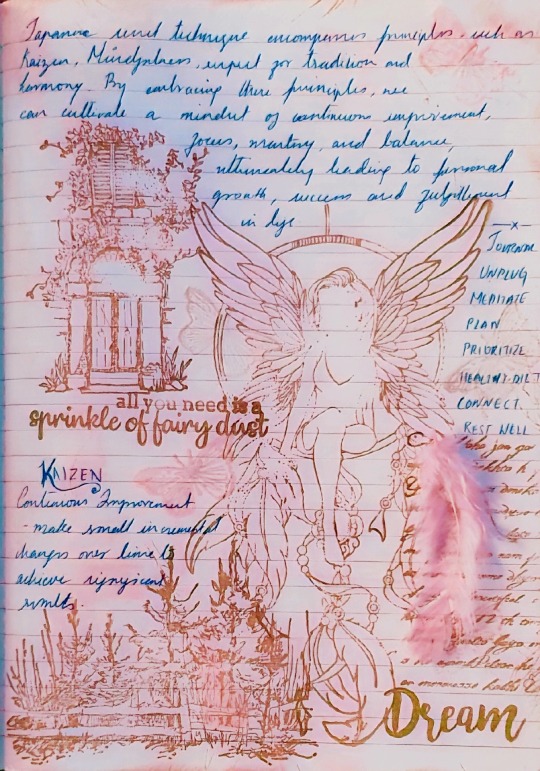 Japanese secret technique encompasses principles such as
Kaizen, Mindfulness, respect for tradition and
harmony. By embracing these principles, we
can cultivate a mindset of continuous improvement,
focus, mastery, and balance,
ultimately leading to personal
growth, success and fulfillment
in life
JOURNAL
UNPLUG
MEDITATE
PLAN
PRIORITIZE
HEALTHY-DIET
CONNECT
REST WELL
all you need is a
sprinkle of fairy dust
KAIZEN
Continuous Improvement
-make small incremental
changes over time to
achieve significant
results.
Dream